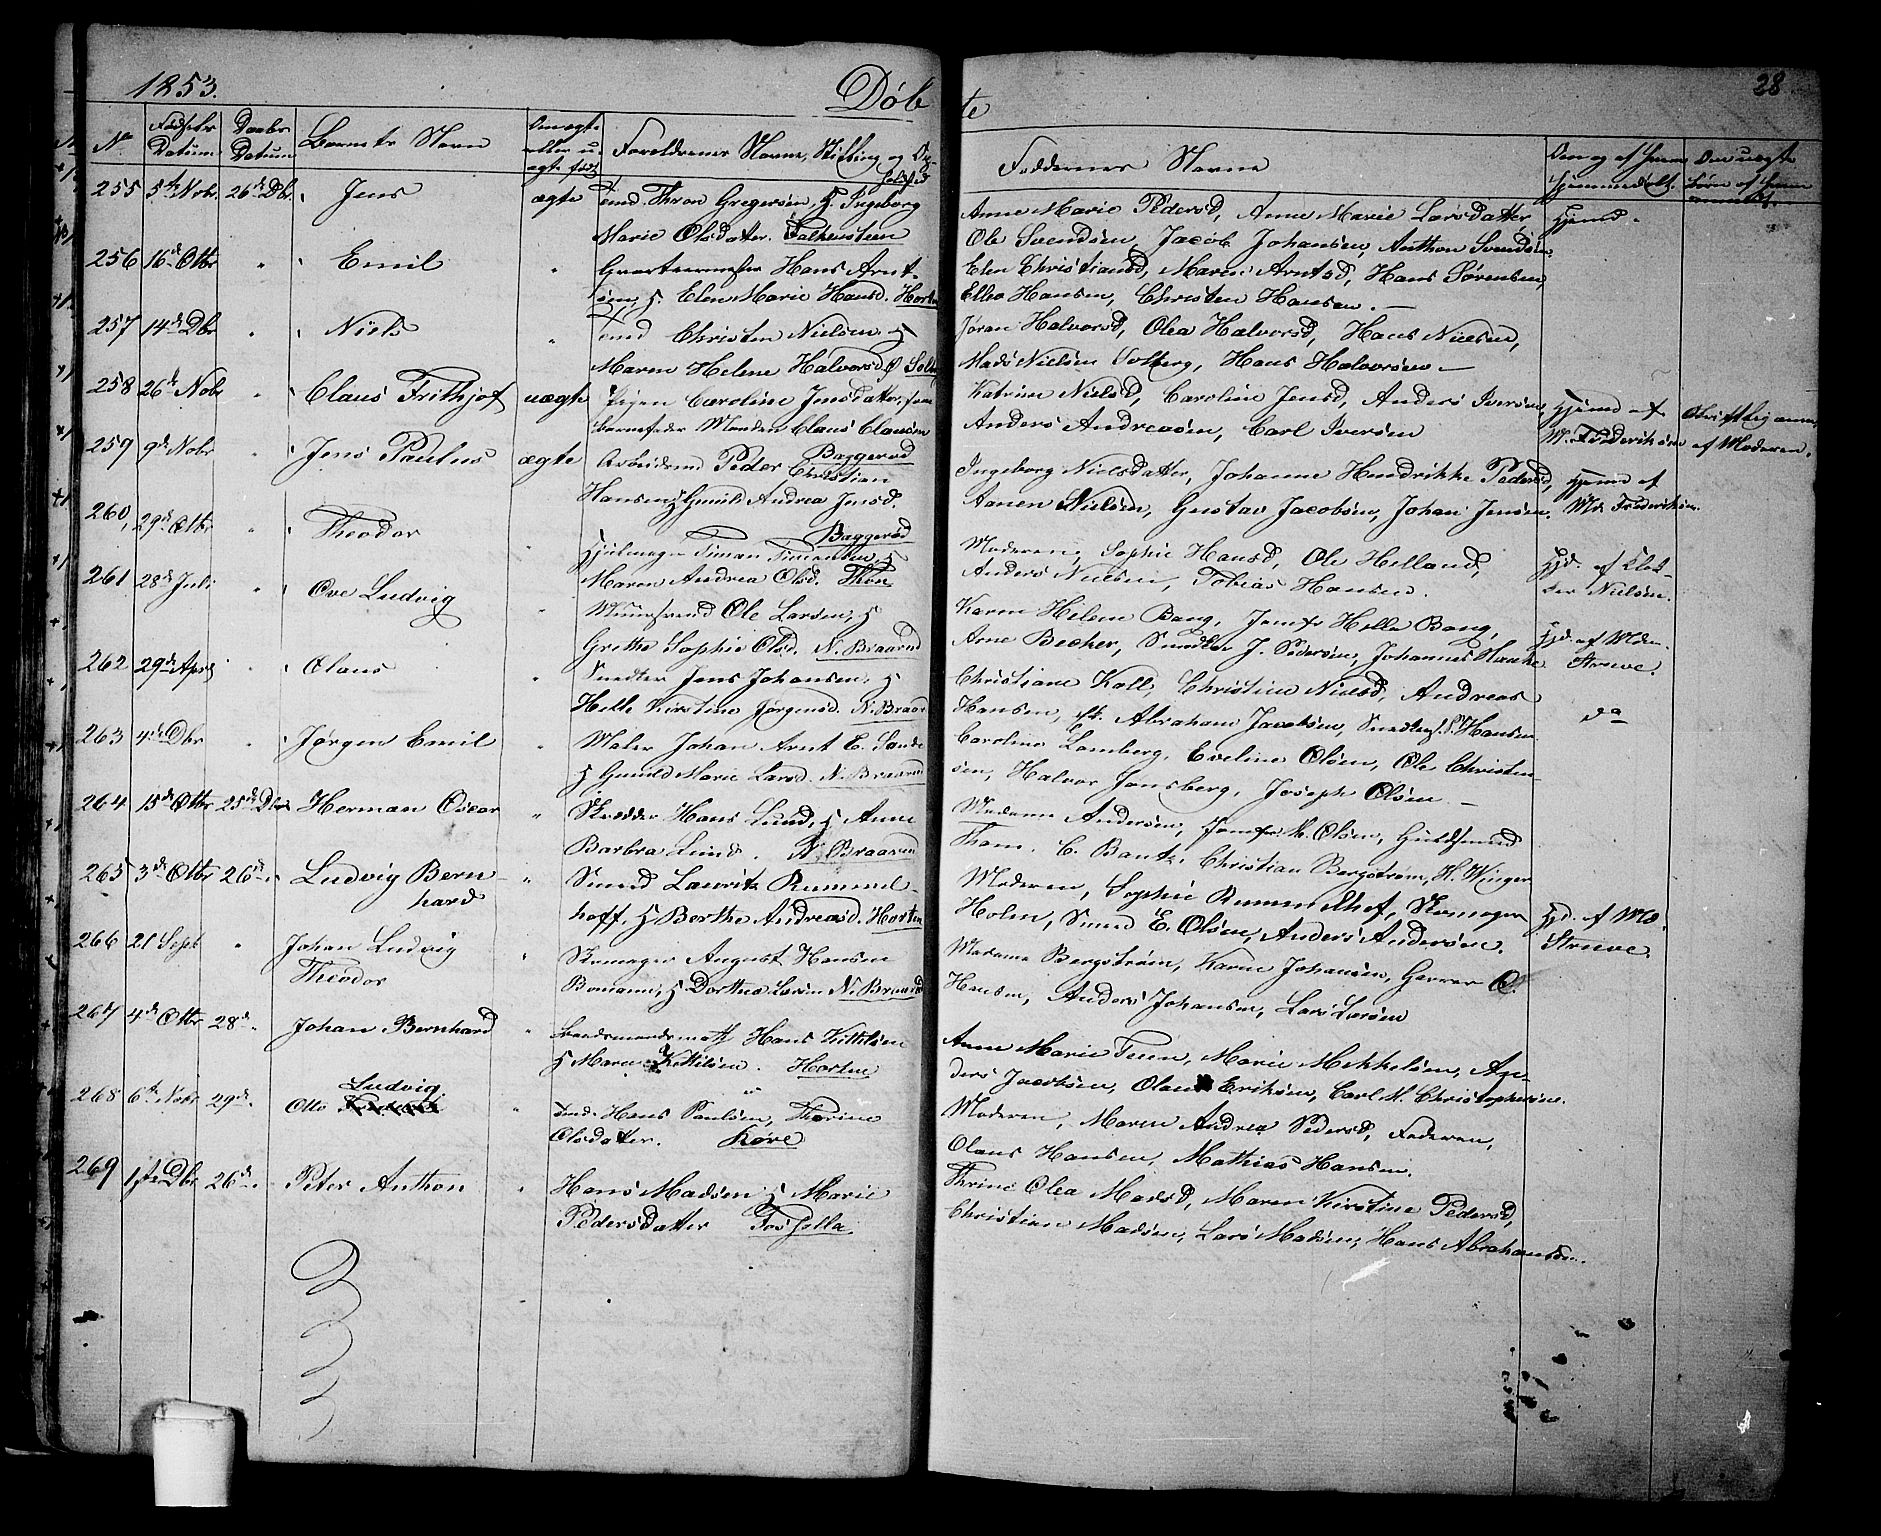 1853.
Døbte
28
No
Fødsels Datum
Daabs Datum
Barnets Navn
Om ægte eller uægte født
Forældrenes Navne, Stilling og
Faddernes Navne
255 5te Novbr. 26de Dbr. Jens ægte Thron Gregersen, Ingeborg
Marie Olsdatter. Falkensteen
Anne Marie Pedersd, Anne Marie Larsdatter
Ole Svendsen, Jacob Johansen, Anthon Svendsen.
Hjemd.
256 16de Otbr " Emil " Hans Arnt-
sen, Elen Marie Hansd. Horten
Elen Christiansd, Maren Arntsd, Hans Sørensen,
Hansen, Christen Hansen.
257 14de Dbr " Niels " Christen Nielsen
Maren Helene Halvorsd
Jøran Halvorsd, Olea Halvorsd, Hans Nielsen,
Mads Nielsen Solberg, Hans Halvorsen
258 26de Nobr " Claus Frithjof uægte Pigen Caroline Jensdatter,
barnefader Manden Claus Clausen
Baggerød
Katrine Nielsd, Caroline Jensd, Anders Iversen,
Anders Andreasen, Carl Iversen
Hjemd af
M. Frederiksen
af Moderen.
259 9de Nobr " Jens Paulus ægte Arbeidsmd Peder Christian
Hansen, Gunild Andrea Jensd.
Baggerød
Ingeborg Nielsdatter, Johanne Hendrikke Pedersd,
Nielsen, Gustav Jacobsen, Johan Jensen.
Hjemd af
Md Frederiksen
260, 29de Otbr " Theodor " Hjulmager
Maren Andrea Olsd. Thon
Moderen, Sophie Hansd, Ole Helland,
Anders Nielsen, Tobias Hansen.
Hjd. af
Nielsen.
261 28de Juli " Ove Ludvig " Ole Larsen,
Grethe Sophie Olsd. N. Braarud
Karen Helene Bang, Jomfr Helle Bang,
Arne Becher, J. Pedersen, Johannes
Hjd. af Mdm.
Struve.
262 29de April " Olaus " Jens Johansen,
Helle Kirstine Jørgensd. N. Braarud
Christiane Koll, Christine Nielsd, Andreas
Hansen, Abraham Jacobsen, Hansen.
do
263 4de Dbr " Jørgen Emil " Maler Johan Arnt E. Sande
Gunild Marie Larsd. N. Braarud
Caroline Lamberg, Eveline Olsen, Ole Christen-
sen, Halvor Jonsberg, Joseph Olsen.
264 15de Otbr 25de Dbr Herman Oscar " Skrædder Hans Lund, Anne
Barbra Lund. N. Braarud
Madame Andersen, Jomfr M. Olsen, Guldsmed
Tham. C. Bantz, Christian Bergstrøm, H. Winger
265 3de Otbr 26de Ludvig Bern-
hard " Smed Lauritz Rummel-
hoff, Berthe Andreasd. Horten
Moderen, Sophie Rummelhof, Skomager
Holm, Smed E. Olsen, Anders Andersen.
Hjd. af Md.
Struve.
266 21 Sept " Johan Ludvig
Theodor " Skomager August Hansen
Bomann, Dorthea Larsen N. Braarud
Madame Bergstrøm, Karen Johansen, Garver O.
Hansen, Anders Johansen, Lars Larsen
267 4de Otbr 28de. Johan Bernhard " Hans Kittilsen
Maren Kittilsen. Horten
Anne Marie Teien, Marie Mikkelsen, An-
ders Jacobsen, Olaus Eriksen, Carl M. Christophersen.
268 6te Nobr 29de. Otto Ludvig " Hans Paulsen, Thorine
Olsdatter. Køre
Moderen, Maren Andrea Pedersd, Faderen,
Olaus Hansen, Mathias Hansen.
269 1ste Dbr 26de. Peter Anthon " Hans Madsen Marie
Pedersdatter
Thrine Olea Madsd, Maren Kirstine Pedersd,
Christian Madsen, Lars Madsen, Hans Abrahamsen.